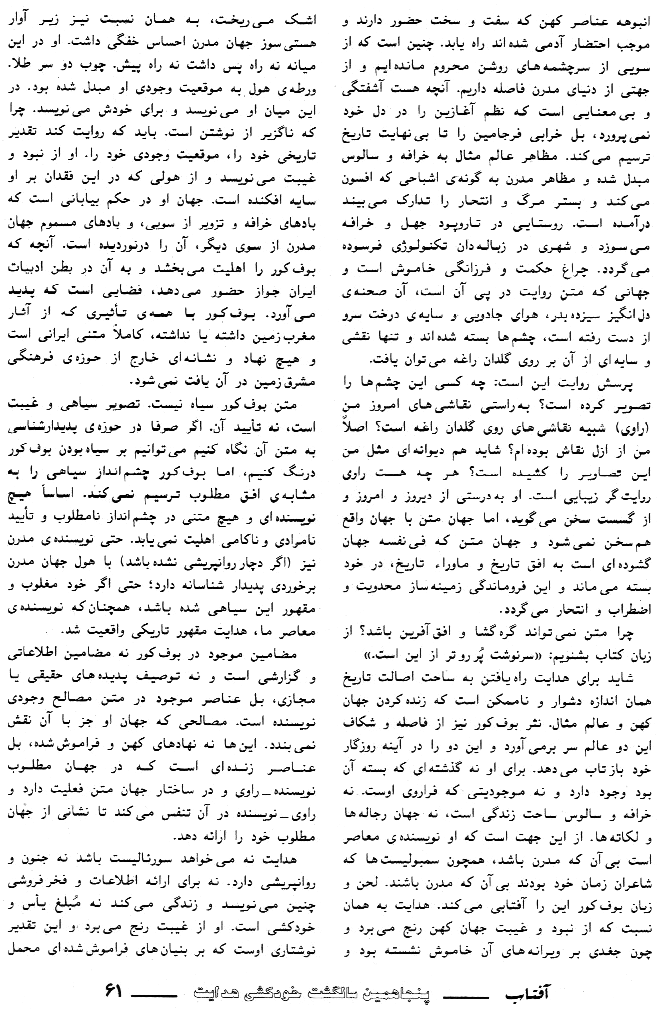 انبوهه عناصر کهن که سفت و سخت حضور دارند و
موجب احتضار آدمی شده‌اند راه یابد. چنین است که از
سویی از سرچشمه‌های روشن محروم مانده‌ایم و از
جهتی از دنیای مدرن فاصله داریم. آنچه هست آشفتگی
و بی‌معنایی است که نظم آغازین را در دل خود
نمی‌پرورد، بل خرابی فرجامین را تا بی‌نهایت تاریخ
ترسیم می‌کند. مظاهر عالم مثال به خرافه و سالوس
مبدل شده و مظاهر مدرن به گونه‌ی اشباحی که افسون
می‌کند و بستر مرگ و انتحار را تدارک می‌بیند
درآمده است. روستایی در تاروپود جهل و خرافه
می‌سوزد و شهری در زباله‌دان تکنولوژی فرسوده
می‌گردد. چراغ حکمت و فرزانگی خاموش است و
جهانی که متن روایت در پی آن است، آن صحنه‌ی
دل‌انگیز سیزده‌بدر، هوای جادویی و سایه‌ی درخت سرو
از دست رفته است، چشم‌ها بسته شده‌اند و تنها نقشی
و سایه‌ای از آن بر روی گلدان راغه می‌توان یافت.
پرسش روایت این است: چه کسی این چشم‌ها را
تصویر کرده است؟ به‌راستی نقاشی‌های امروز من
(راوی) شبیه نقاشی‌های روی گلدان راغه است؟ اصلاً
من از ازل نقاش بوده‌ام؟ شاید هم دیوانه‌ای مثل من
این تصاویر را کشیده است؟ هر چه هست راوی
روایت‌گر زیبایی است. او به‌درستی از دیروز و امروز و
از گسست سخن می‌گوید، اما جهان متن با جهان واقع
هم‌سخن نمی‌شود و جهان متن که فی‌نفسه جهان
گشوده‌ای است به افق تاریخ و ماوراء تاریخ، در خود
بسته می‌ماند و این فروماندگی زمینه‌ساز محدویت و
اضطراب و انتحار می‌گردد.
چرا متن نمی‌تواند گره‌گشا و افق‌آفرین باشد؟ از
زبان کتاب بشنویم: «سرنوشت پُر روتر از این است.»
شاید برای هدایت راه‌یافتن به ساحت اصالت تاریخ
همان اندازه دشوار و ناممکن است که زنده‌کردن جهان
کهن و عالم مثال. نثر بوف‌کور نیز از فاصله و شکاف
این دو عالم سر برمی‌آورد و این دو را در آینه روزگار
خود بازتاب می‌دهد. برای او نه گذشته‌ای که بسته آن
بود وجود دارد و نه موجودیتی که فراروی اوست. نه
خرافه و سالوس ساحت زندگی است، نه جهان رجاله‌ها
و لکاته‌ها. از این جهت است که او نویسنده‌ی معاصر
است بی‌آن که مدرن باشد، همچون سمبولیست‌ها که
شاعران زمان خود بودند بی‌آن که مدرن باشند. لحن و
زبان بوف‌کور این را آفتابی می‌کند. هدایت به همان
نسبت که از نبود و غیبت جهان کهن رنج می‌برد و
چون جغدی بر ویرانه‌های آن خاموش نشسته بود و
اشک می‌ریخت، به همان نسبت نیز زیر آوار
هستی‌سوز جهان مدرن احساس خفگی داشت. او در این
میانه نه راه پس داشت نه راه پیش. چوب دو سر طلا.
ورطه‌ی هول به موقعیت وجودی او مبدل شده بود. در
این میان او می‌نویسد و برای خودش می‌نویسد. چرا
که ناگزیر از نوشتن است. باید که روایت کند تقدیر
تاریخی خود را، موقعیت وجودی خود را. او از نبود و
غیبت می‌نویسد و از هولی که در این فقدان بر او
سایه افکنده است. جهان او در حکم بیابانی است که
بادهای خرافه و تزویر از سویی، و بادهای مسموم جهان
مدرن از سوی دیگر، آن را درنوردیده است. آنچه که
بوف‌کور را اهلیت می‌بخشد و به آن در بطن ادبیات
ایران جواز حضور می‌دهد، فضایی است که پدید
می‌آورد. بوف‌کور با همه‌ی تأثیری که از آثار
مغرب‌زمین داشته یا نداشته، کاملاً متنی ایرانی است
و هیچ نهاد و نشانه‌ای خارج از حوزه‌ی فرهنگی
مشرق‌زمین در آن یافت نمی‌شود.
متن بوف‌کور سیاه نیست. تصویر سیاهی و غیبت
است، نه تأیید آن. اگر صرفا در حوزه‌ی پدیدارشناسی
به متن آن نگاه کنیم می‌توانیم بر سیاه‌بودن بوف‌کور
درنگ کنیم، اما بوف‌کور چشم‌انداز سیاهی را به
مثابه‌ی افق مطلوب ترسیم نمی‌کند. اساساً هیچ
نویسنده‌ای و هیچ متنی در چشم‌انداز نامطلوب و تأیید
نامرادی و ناکامی اهلیت نمی‌یابد. حتی نویسنده‌ی مدرن
نیز (اگر دچار روانپریشی نشده باشد) با هول جهان مدرن
برخوردی پدیدار شناسانه دارد؛ حتی اگر خود مغلوب و
مقهور این سیاهی شده باشد، همچنان‌که نویسنده‌ی
معاصر ما، هدایت مقهور تاریکی واقعیت شد.
مضامین موجود در بوف‌کور نه مضامین اطلاعاتی
و گزارشی است و نه توصیف پدیده‌های حقیقی یا
مجازی، بل عناصر موجود در متن مصالح وجودی
نویسنده است. مصالحی که جهان او جز با آن نقش
نمی‌بندد. این‌ها نه نهادهای کهن و فراموش‌شده، بل
عناصر زنده‌ای است که در جهان مطلوب
نویسنده_راوی و در ساختار جهان متن فعلیت دارد و
راوی_نویسنده در آن تنفس می‌کند تا نشانی از جهان
مطلوب خود را ارائه دهد.
هدایت نه می‌خواهد سورئالیست باشد نه جنون و
روانپریشی دارد. نه برای ارائه اطلاعات و فخرفروشی
چنین می‌نویسد و زندگی می‌کند نه مُبلغ یأس و
خودکشی است. او از غیبت رنج می‌برد و این تقدیر
نوشتاری اوست که بر بنیان‌های فراموش‌شده‌ای محمل
آفتاب ـــــ پنجاهمین سالگشت خودکشی هدایت ـــــ ۶۱